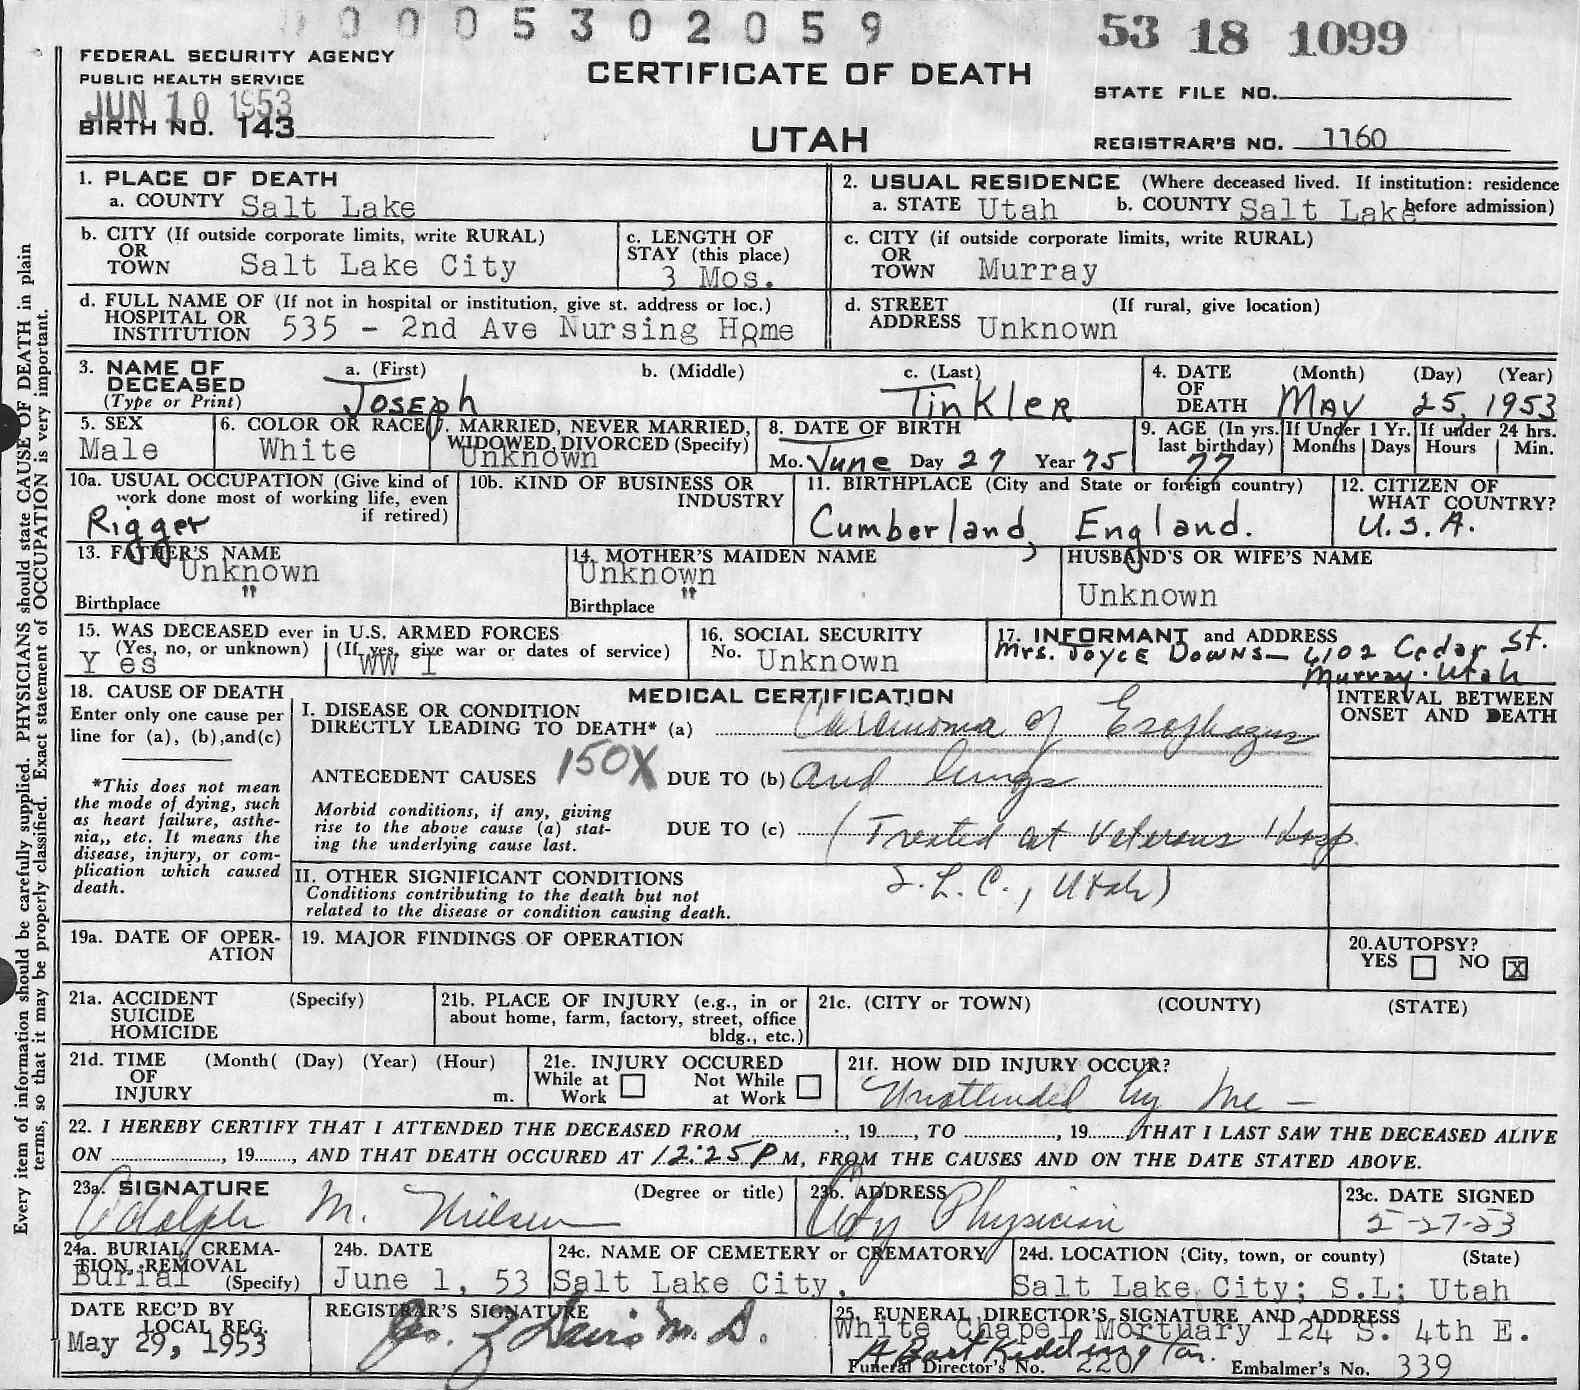 0005302059
53 18 1099
FEDERAL SECURITY AGENCY
PUBLIC HEALTH SERVICE
CERTIFICATE OF DEATH
STATE FILE NO.
JUN 10 1953
BIRTH NO. 143
UTAH
REGISTRAR'S NO. 1160
1. PLACE OF DEATH
a. COUNTY Salt Lake
2. USUAL RESIDENCE (Where deceased lived. If institution: residence before admission)
a. STATE Utah b. COUNTY Salt Lake
b. CITY (If outside corporate limits, write RURAL)
OR
TOWN Salt Lake City
c. LENGTH OF
STAY (this place)
3 Mos.
c. CITY (if outside corporate limits, write RURAL)
OR
TOWN Murray
d. FULL NAME OF (If not in hospital or institution, give st. address or loc.)
HOSPITAL OR
INSTITUTION 535 - 2nd Ave Nursing Home
d. STREET (If rural, give location)
ADDRESS Unknown
3. NAME OF
DECEASED
(Type or Print)
a. (First) b. (Middle) c. (Last)
Joseph Tinkler
4. DATE (Month) (Day) (Year)
OF
DEATH May 25, 1953
5. SEX
Male
6. COLOR OR RACE
White
7. MARRIED, NEVER MARRIED,
WIDOWED, DIVORCED (Specify)
Unknown
8. DATE OF BIRTH
Mo. June Day 27 Year 75
9. AGE (In yrs.
last birthday)
77
If Under 1 Yr.
Months Days
If under 24 hrs.
Hours Min.
10a. USUAL OCCUPATION (Give kind of
work done most of working life, even
if retired)
Rigger
10b. KIND OF BUSINESS OR
INDUSTRY
11. BIRTHPLACE (City and State or foreign country)
Cumberland, England.
12. CITIZEN OF
WHAT COUNTRY?
U.S.A.
13. FATHER'S NAME
Unknown
Birthplace "
14. MOTHER'S MAIDEN NAME
Unknown
Birthplace "
HUSBAND'S OR WIFE'S NAME
Unknown
15. WAS DECEASED ever in U.S. ARMED FORCES
(Yes, no, or unknown) (If yes, give war or dates of service)
Yes WW 1
16. SOCIAL SECURITY
No. Unknown
17. INFORMANT and ADDRESS
Mrs. Joyce Downs - 6102 Cedar St.
Murray. Utah
18. CAUSE OF DEATH
Enter only one cause per
line for (a), (b), and (c)
*This does not mean
the mode of dying, such
as heart failure, asthe-
nia,, etc. It means the
disease, injury, or com-
plication which caused
death.
MEDICAL CERTIFICATION
INTERVAL BETWEEN
ONSET AND DEATH
I. DISEASE OR CONDITION
DIRECTLY LEADING TO DEATH* (a) Carcinoma of Esophagus
ANTECEDENT CAUSES 150X DUE TO (b) and lungs
Morbid conditions, if any, giving
rise to the above cause (a) stat-
ing the underlying cause last.
DUE TO (c) (Treated at Veterans Hosp.
S.L.C., Utah)
II. OTHER SIGNIFICANT CONDITIONS
Conditions contributing to the death but not
related to the disease or condition causing death.
19a. DATE OF OPER-
ATION
19. MAJOR FINDINGS OF OPERATION
20. AUTOPSY?
YES NO X
21a. ACCIDENT (Specify)
SUICIDE
HOMICIDE
21b. PLACE OF INJURY (e.g., in or
about home, farm, factory, street, office
bldg., etc.)
21c. (CITY or TOWN) (COUNTY) (STATE)
21d. TIME (Month( (Day) (Year) (Hour)
OF
INJURY m.
21e. INJURY OCCURED
While at Work Not While at Work
21f. HOW DID INJURY OCCUR?
Unattended by me -
22. I HEREBY CERTIFY THAT I ATTENDED THE DECEASED FROM , 19 , TO , 19 , THAT I LAST SAW THE DECEASED ALIVE
ON , 19 , AND THAT DEATH OCCURED AT 12:25 P M, FROM THE CAUSES AND ON THE DATE STATED ABOVE.
23a. SIGNATURE (Degree or title)
Adolph M. Nielsen
23b. ADDRESS
City Physician
23c. DATE SIGNED
5-27-53
24a. BURIAL, CREMA-
TION, REMOVAL
(Specify)
Burial
24b. DATE
June 1, 53
24c. NAME OF CEMETERY or CREMATORY
Salt Lake City,
24d. LOCATION (City, town, or county) (State)
Salt Lake City; S.L; Utah
DATE REC'D BY
LOCAL REG.
May 29, 1953
REGISTRAR'S SIGNATURE
Davis M.D.
25. FUNERAL DIRECTOR'S SIGNATURE AND ADDRESS
White Chapel Mortuary 124 S. 4th E.
Funeral Director's No. 220 Embalmer's No. 339
Every item of information should be carefully supplied. PHYSICIANS should state CAUSE OF DEATH in plain
terms, so that it may be properly classified. Exact statement of OCCUPATION is very important.